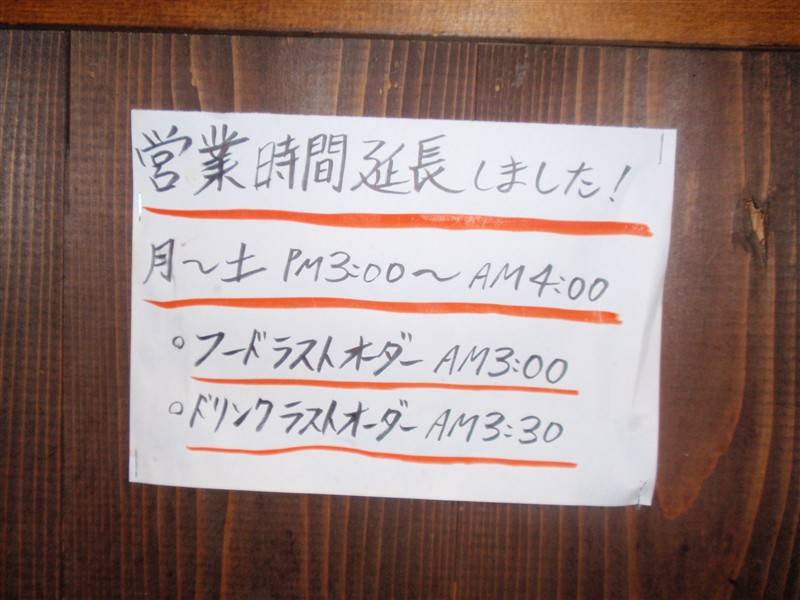 営業時間延長しました!
月〜土 PM3:00〜AM4:00
○フードラストオーダー AM3:00
○ドリンクラストオーダー AM3:30